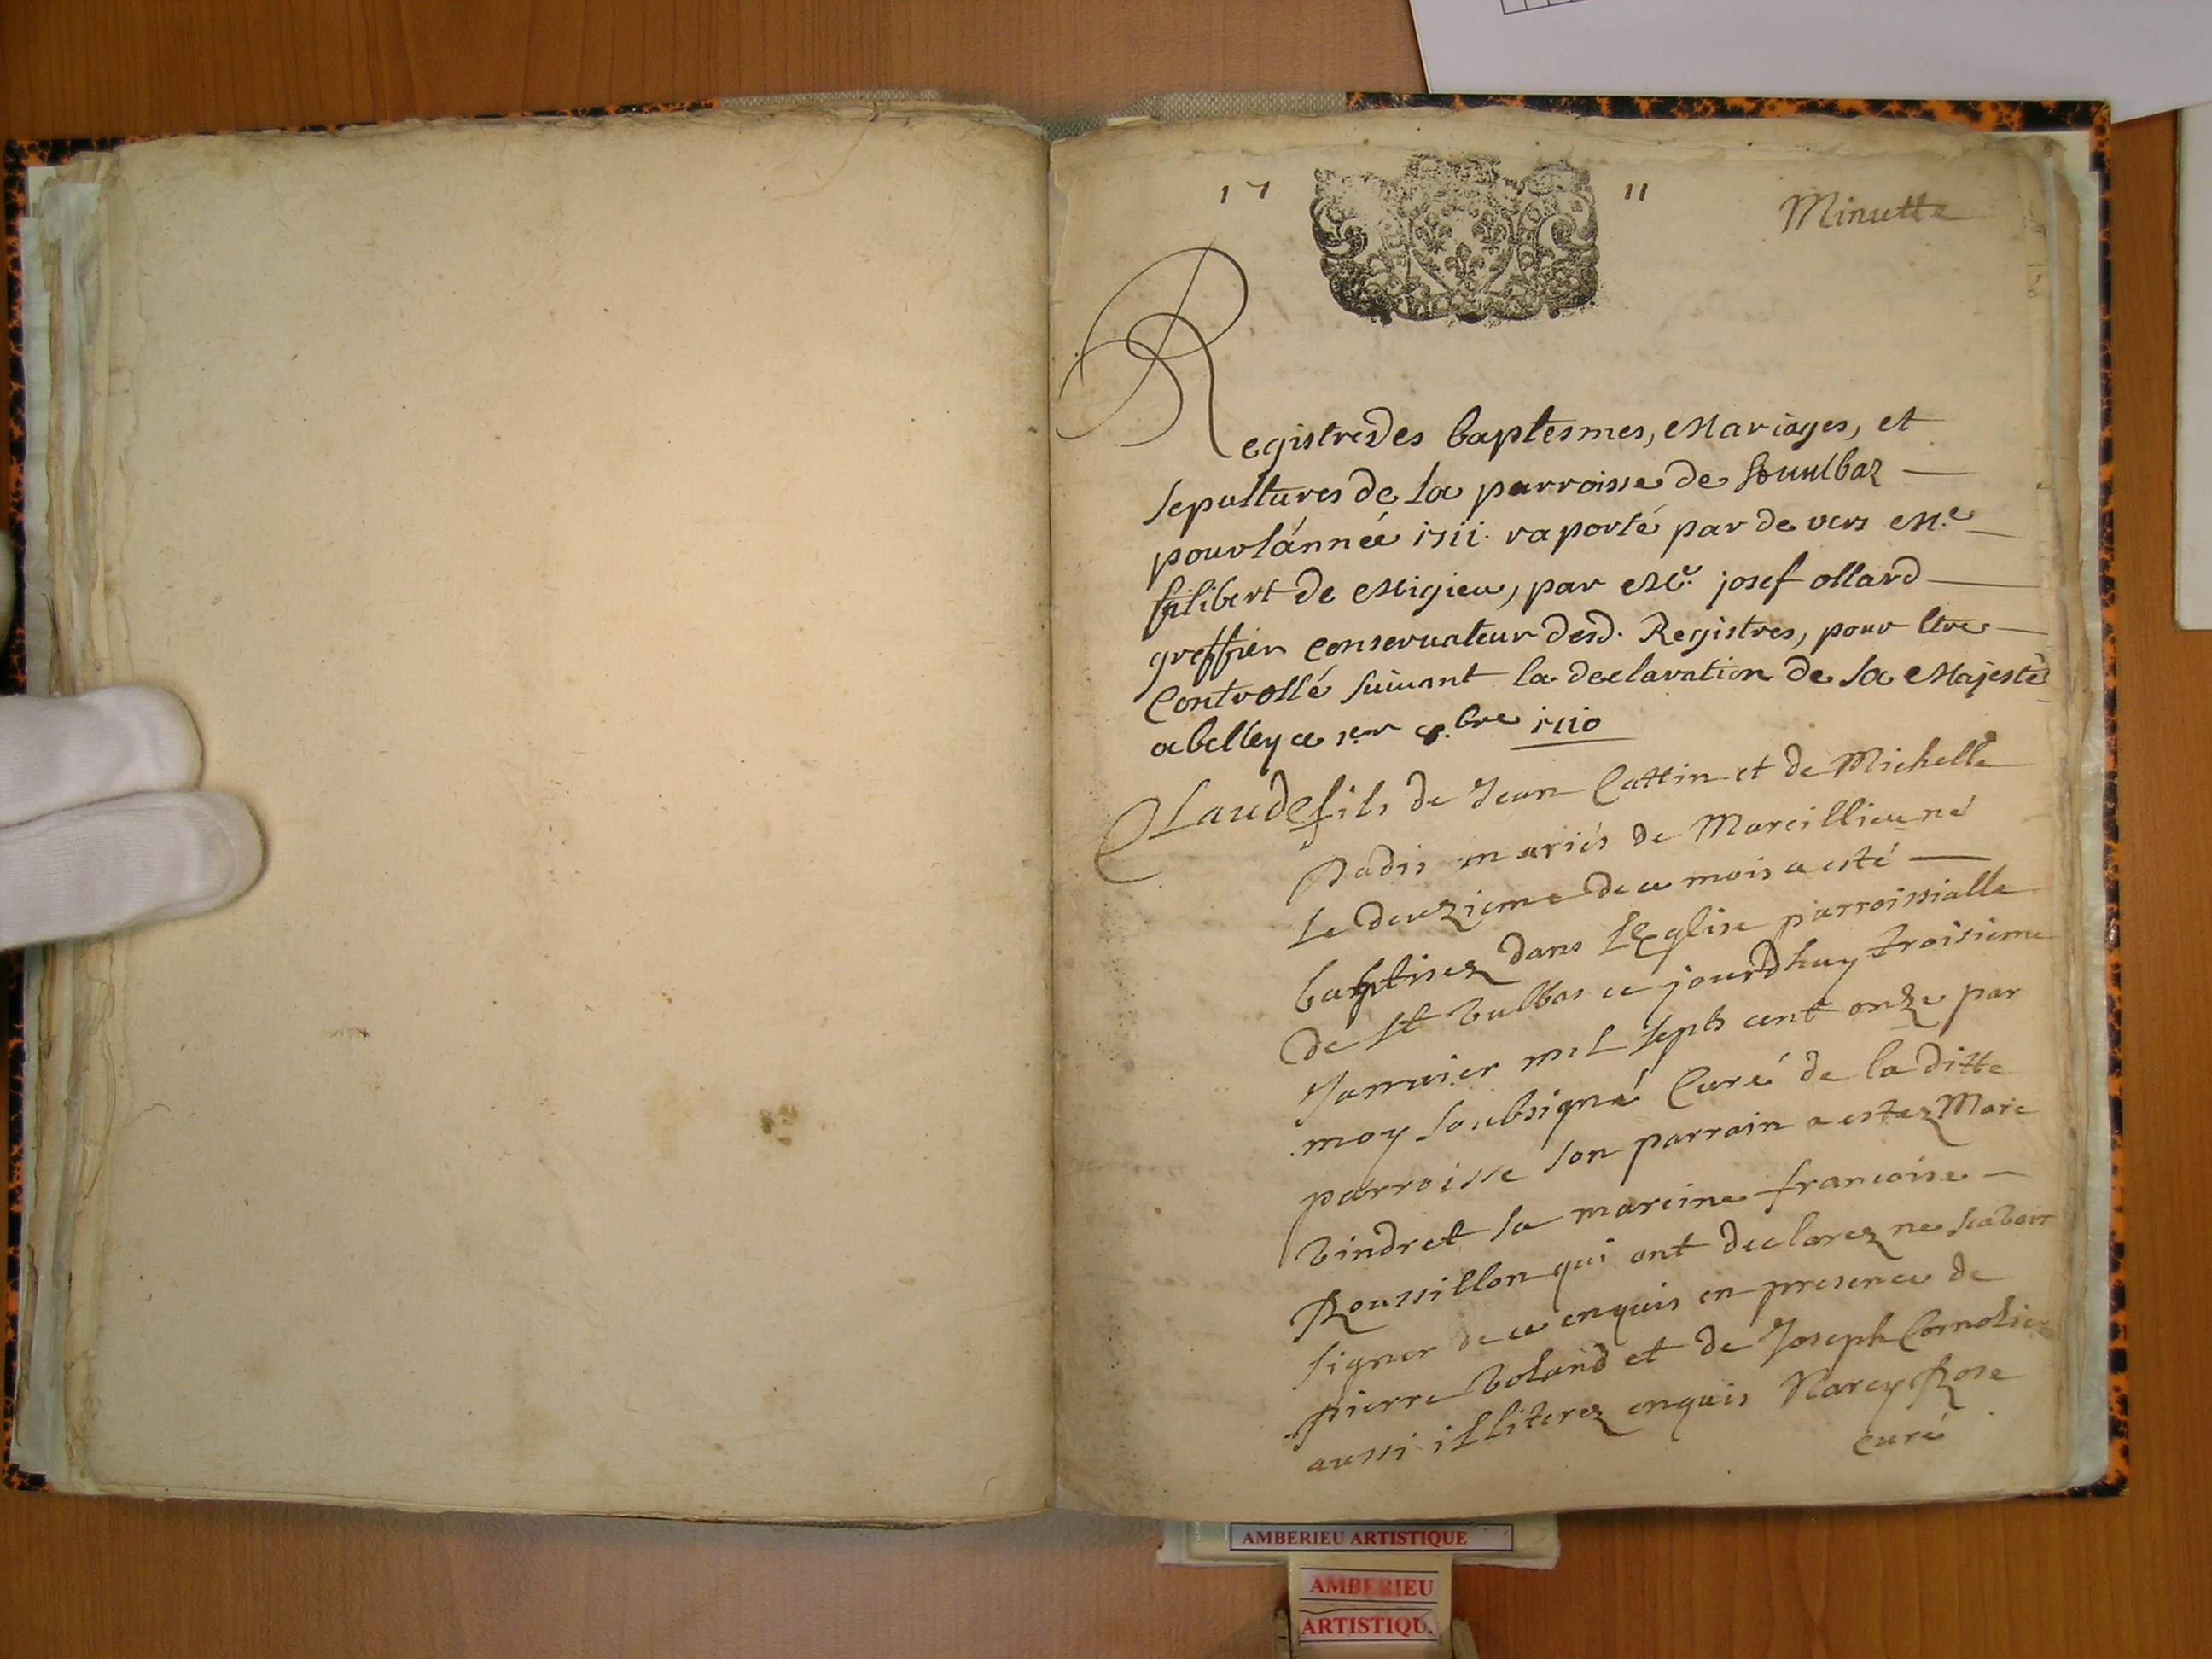 17 11
Minutte
Registre des baptesmes, Mariages, et
sepultures de la parroisse de
pour lánneé 1711. raporté par de vers Me
filibert de Migieu, par Me. josef ollard
greffier Conservateur desd. Registres, pour Etre
Controllé suivant la declaration de sa Majesté
a belley ce 1er 1710
Claude fils de Jean Cattin et de Michelle
mariés de Marcillieu né
le deuzieme de ce mois a esté
baptisez dans LEglise parroissialle
de St Vulbas ce jourdhuy troisieme
Janvier mil sept cent onze par
moy soubsigné Curé de la ditte
parroisse son parrain a estez Marc
Vindret sa mareine francoise
Roussillon qui ont declarez ne scavoir
signer de ce enquis en presence de
pierre Voland et de Joseph Cornolier
aussi illiterez enquis Narcy Rose
curé
AMBERIEU ARTISTIQUE
AMBERIEU
ARTISTIQU